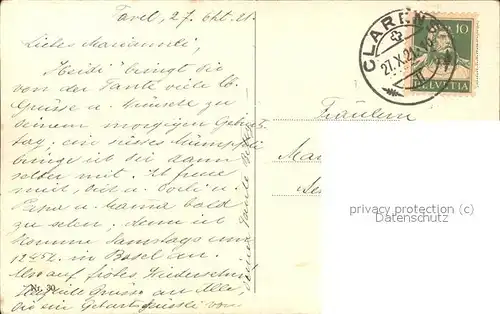 Tavel, 27. Okt. 21.
Liebes Mariannli,
"Heidi" bringt dir
von der Tante viele lb.
Grüsse u. Wünsche zu
deinem morgigen Geburts-
tag; ein süsses
bringe ich dir dann
selber mit. Ich freue
mich, dich u. u.
Papa u. Mama bald
zu sehen, denn ich
komme Samstags um
12 in Basel an.
Also auf frohes Wiedersehen!
viele Grüsse an Alle,
die ein von
deiner Tante
Nr. 30
CLARENS
27.X.21
10
HELVETIA
Fräulein
privacy protection
copyright (c)